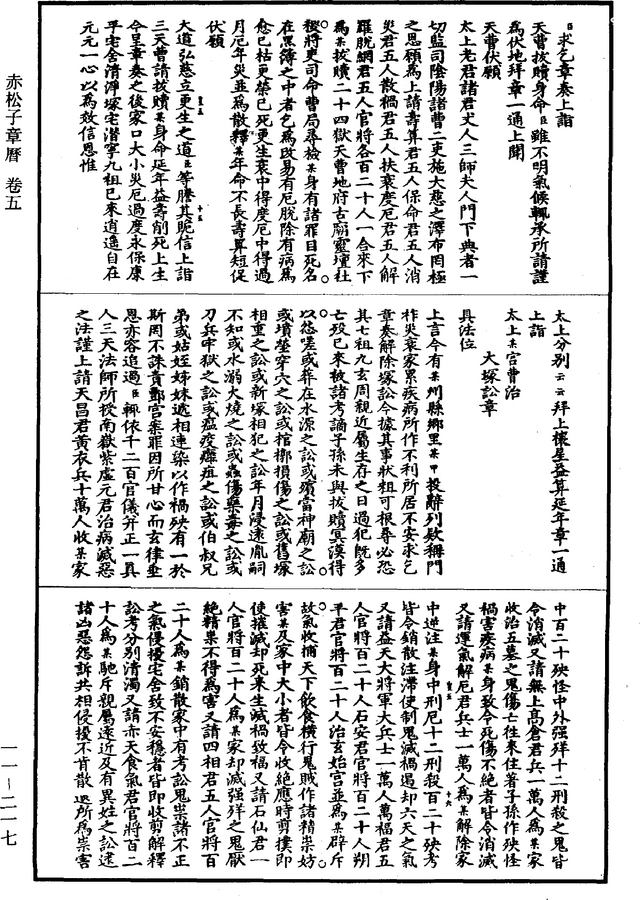 臣求乞章奏上詣
天曹拔贖身命臣雖不明氣候輒承所請謹
為伏地拜章一通上聞
天曹伏願
太上老君諸君丈人三師夫人門下典者一
切監司陰陽諸曹二吏施大慈之澤布罔極
之恩願為上請壽算君五人保命君五人消
災君五人散禍君五人扶衰度厄君五人解
羅脫網君五人官將各百二十人一合來下
為某拔贖二十四獄天曹地府古廟靈壇社
稷將吏司命曹局尋檢某身有諸罪目死名
在黑簿之中者乞為改易有厄脫除有病為
愈已枯更榮已死更生衰中得度厄中得過
月厄年災並為散釋某年命不長壽算短促
伏願
大道弘慈立更生之道臣等騰其貺信上詣
三天曹請拔贖某身命延年益壽削死上生
今呈章奏之後家口大小災厄過度永保康
平宅舍清淨塚宅潛寧九祖已來逍遙自在
元元一心以為效信恩惟
太上分別云云拜上懷星益算延年章一通
上詣
太上某宮曹治
大塚訟章
具法位
上言今有某州縣鄉里某甲投辭列款稱門
祚災衰家累疾病所作不利所居不安求乞
章奏解除塚訟今據其事狀粗可根尋必恐
其七祖九玄周親近屬生存之日過犯既多
亡歿已來被諸考謫子孫未與拔贖冥漠得
以恣嗟或葬在水源之訟或殯當神廟之訟
或墳塋穿穴之訟或棺槨損傷之訟或舊塚
相重之訟或新塚相犯之訟年月浸遠胤嗣
不知或水溺火燒之訟或蟲傷藥毒之訟或
刀兵牢獄之訟或瘟疫癰疽之訟或伯叔兄
弟或姑姪姊妹遞相連染以作禍殃有一於
斯罔不誅責酆宮案罪因所甘心而玄律垂
恩亦容追過臣輒依千二百官儀并正一真
人三天法師所授南嶽紫虛元君治病滅惡
之法謹上請天昌君黃衣兵十萬人收某家
中百二十殃怪中外強殍十二刑殺之鬼皆
令消滅又請無上高倉君兵一萬人為某家
收治五墓之鬼傷亡往來住著子孫作殃怪
禍害疾病某身致令死傷不絕者皆令消滅
又請運氣解厄君兵士一萬人為某解除家
中逆注某身中刑厄十二刑殺百二十殃考
皆令銷散注滯使制鬼滅禍遏却六天之氣
又請益天大將軍大兵士一萬人萬福君五
人官將百二十人石安君官將百二十人朔
平君官將百二十人治玄始宮並為某辟斥
故氣收捕天下飲食橫行鬼賊作諸精祟妨
害某及家中大小者皆令收絕應時剪撲即
使摧滅却死來生滅禍致福又請石仙君一
人官將百二十人為某家却滅強殍之鬼厭
絕精祟不得為害又請四相君五人官將百
二十人為某銷散家中有考訟鬼祟諸不正
之氣侵擾宅舍致不安穩者皆即收剪解釋
訟考分別清濁又請赤天食氣君官將百二
十人為某馳斥親屬遠近及有異姓之訟逮
諸凶惡怨訴共相侵擾不肯散退所為祟害
赤松子章曆 卷五
一一—二一七